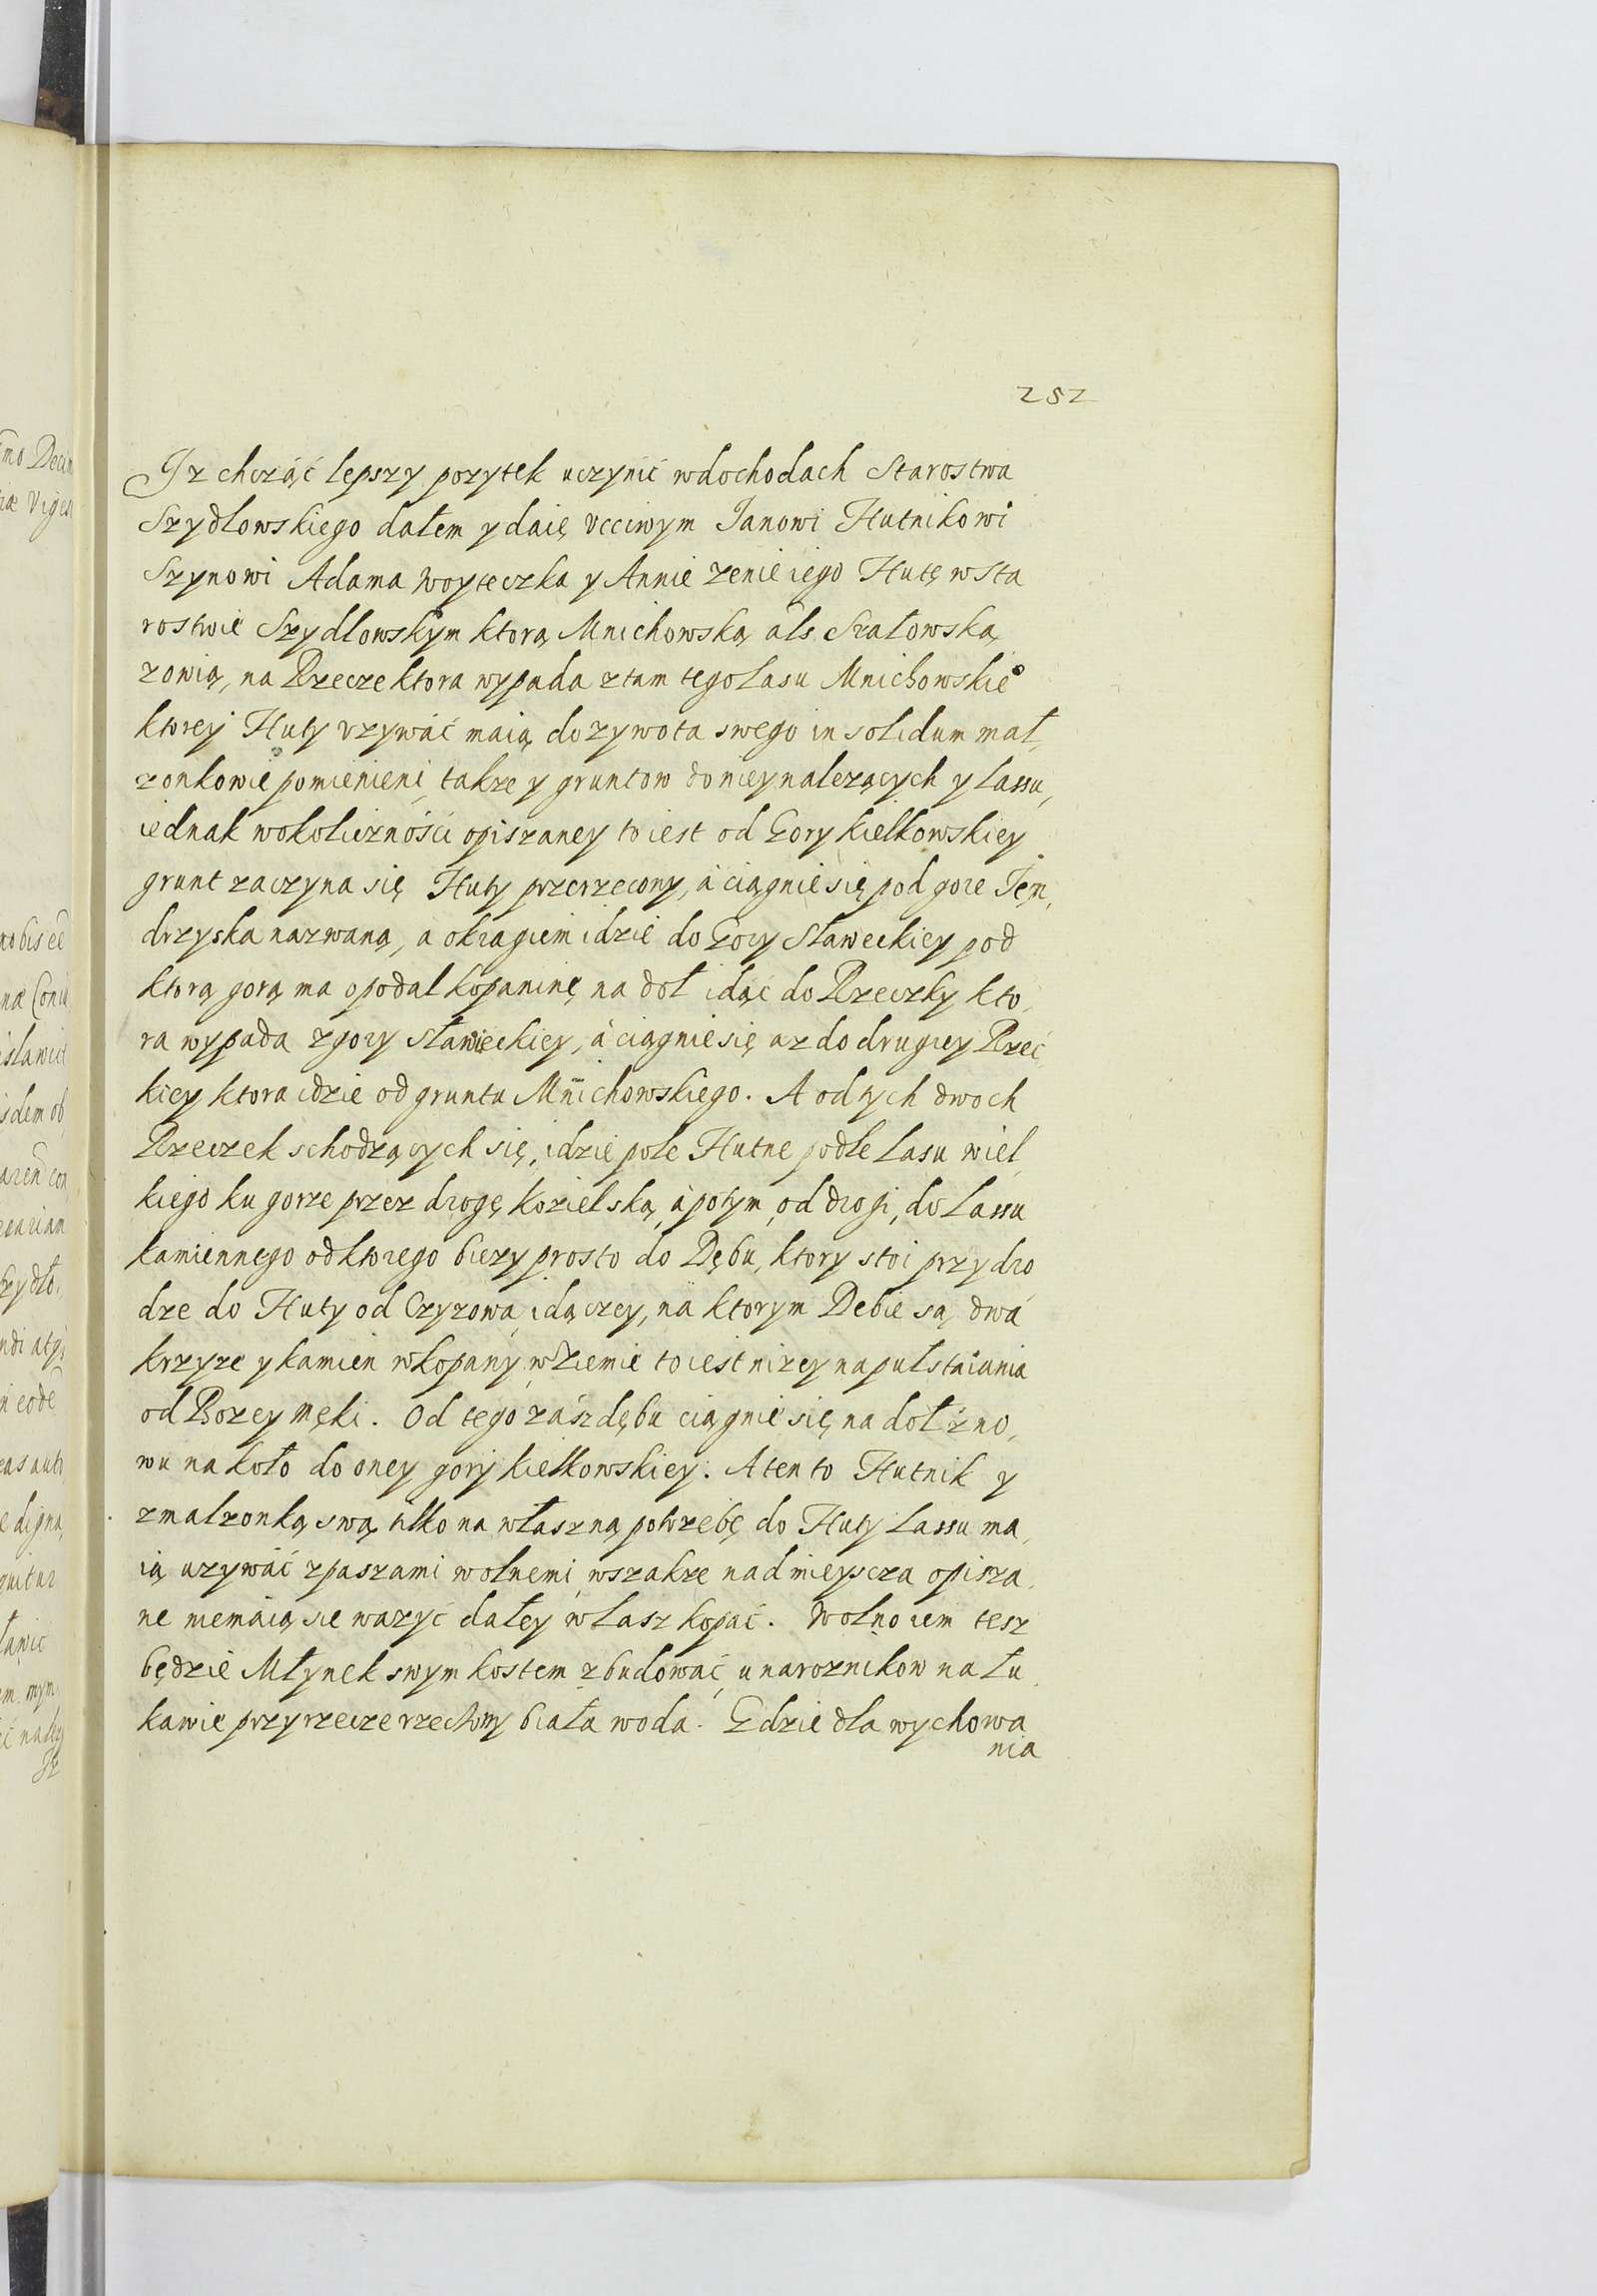 252
Iz chcząć lepszy pozytek uczynić wdochodach Starostwa
Szydłowskiego dałem y daię vcciwym Janowi Hutnikowi
Szynowi Adama Woyteczka y Annie zenie iego Hutę wsta
rostwie Szydlowskym ktorą Mnichowską als Szałowską
zowią, na Rzecze ktora wypada ztam tego Lasu Mnichowskie°
ktorej Huty vzywać maią do zywota swego in solidum mał,
zonkowie pomienieni, takze y gruntow do niey nalezących y Lassu,
iednak wokoliczności opiszaney to iest od Gory kielkowskiey
grunt zaczyna się Huty przerzecony, á ciągnie się pod gore Jem,
drzyska nazwaną, a okragiem idzie do Gory Sławeckiey pod
ktorą gorą ma opodal kopaninę na doł idąć do Rzeczky kto,
ra wypada zgory sławieckiey, á ciągnie się az do drugiey Rzec
kiey ktora idzie od gruntu Mnichowskiego. A od tych dwoch
Rzeczek schodzących się, idzie pole Hutne podle Lasu wiel,
kiego ku gorze przez drogę kozielską, á potym, od drogi, do Lassu
kamiennego od ktorego biezy prosto do Dębu, ktory stoi przy dro
dze do Huty od Czyzowa idączey, na ktorym Debie są dwa
krzyze y kamien wkopany w Ziemie to iest nizey na pułstaiania
od Bozey męki. Od tego zász dębu ciągnie się na doł zno,
wu na koło do oney gory kielkowskiey. A ten to Hutnik y
zmalzonką swą tilko na właszną potrzebę do Huty Lassu ma,
ią uzywać zpaszami wolnemi, wszakze nad mieyscza opisza,
ne niemaią sie wazyć daley w Lasz kopać. Wolno iem tesz
będzie Młynek swym kostem zbudować, u naroznikow na Łu,
kawie przy rzecze rzeczony biała woda. Gdzie dla wychowa
nia